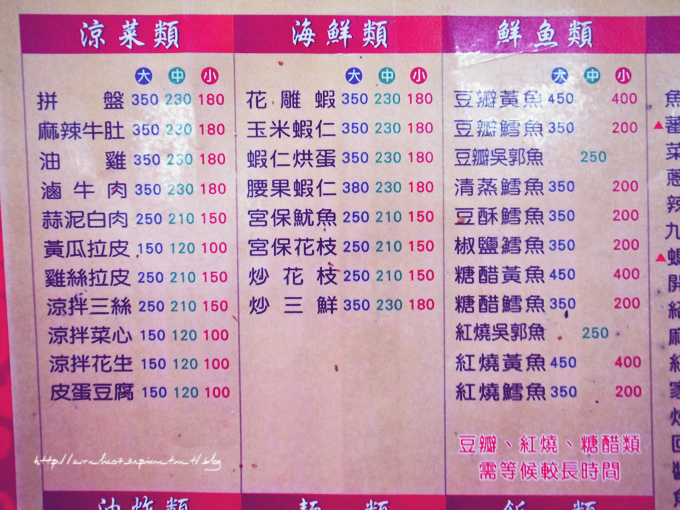 涼菜類
大 中 小
拼盤 350 230 180
麻辣牛肚 350 230 180
油雞 350 230 180
滷牛肉 350 230 180
蒜泥白肉 250 210 150
黃瓜拉皮 150 120 100
雞絲拉皮 250 210 150
涼拌三絲 250 210 150
涼拌菜心 150 120 100
涼拌花生 150 120 100
皮蛋豆腐 150 120 100
海鮮類
大 中 小
花雕蝦 350 230 180
玉米蝦仁 350 230 180
蝦仁烘蛋 350 230 180
腰果蝦仁 380 230 180
宮保魷魚 250 210 150
宮保花枝 250 210 150
炒花枝 250 210 150
炒三鮮 350 230 180
鮮魚類
大 中 小
豆瓣黃魚 450 400
豆瓣鱈魚 350 200
豆瓣吳郭魚 250
清蒸鱈魚 350 200
豆酥鱈魚 350 200
椒鹽鱈魚 350 200
糖醋黃魚 450 400
糖醋鱈魚 350 200
紅燒吳郭魚 250
紅燒黃魚 450 400
紅燒鱈魚 350 200
豆瓣、紅燒、糖醋類
需等候較長時間
油炸類
麵類
飯類
魚
▲蕃
菜
蔥
辣
九
開
麻
紅
家